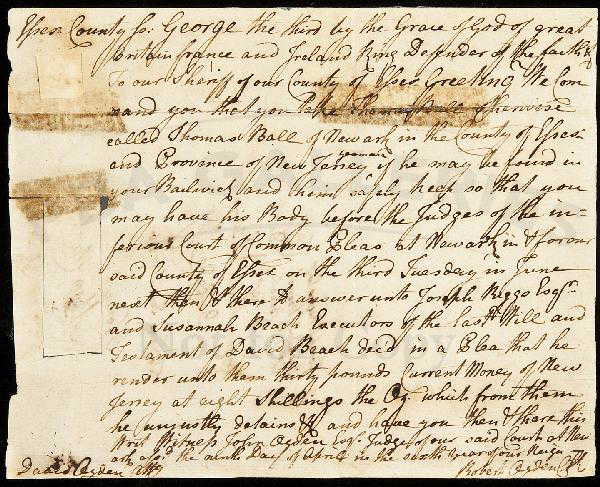 Essex County ss. George the third by the Grace of God of great
Britain france and Ireland King Defender of the faith &c
To our Sheriff of our County of Essex Greeting We Com
mand you that you Take Thomas Ball otherwise
called Thomas Ball of Newark in the County of Essex
and Province of New Jersey yeoman if he may be found in
your Bailwick and him safely keep so that you
may have his Body before the Judges of the in-
feriour Court of Common Pleas at Newark in & for our
said County of Essex on the third Tuesday in June
next then & there to answer unto Joseph Riggs Esqr.
and Susannah Beach Executors of the Last Will and
Testament of David Beach decd in a Plea that he
render unto them thirty pounds Current Money of New
Jersey at eight Shillings the Oz which from them
he unjustly detains & and have you then & there this
Writ Witness John Ogden Esqr. Judge of our said Court at New
ark afsd. the ninth Day of April in the sixth year of our Reign
David Ogden Atty
Robert Ogden Clk